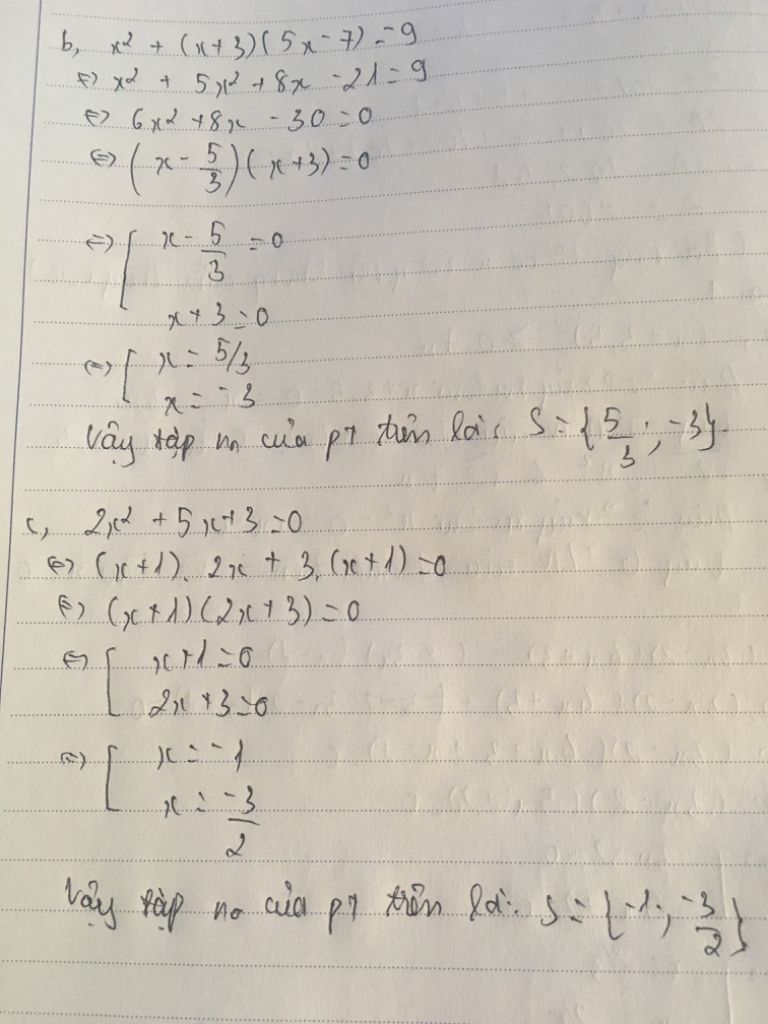 b, x² + (x+3)(5x-7) = 9
⇔ x² + 5x² + 8x - 21 = 9
⇔ 6x² + 8x - 30 = 0
⇔ (x - 5/3)(x+3) = 0
⇔ [ x - 5/3 = 0
x + 3 = 0
⇔ [ x = 5/3
x = -3
Vậy tập no của pt trên là: S = {5/3; -3}.
c, 2x² + 5x + 3 = 0
⇔ (x+1). 2x + 3.(x+1) = 0
⇔ (x+1)(2x+3) = 0
⇔ [ x+1 = 0
2x+3 = 0
⇔ [ x = -1
x = -3/2
Vậy tập no của pt trên là: S = {-1; -3/2}